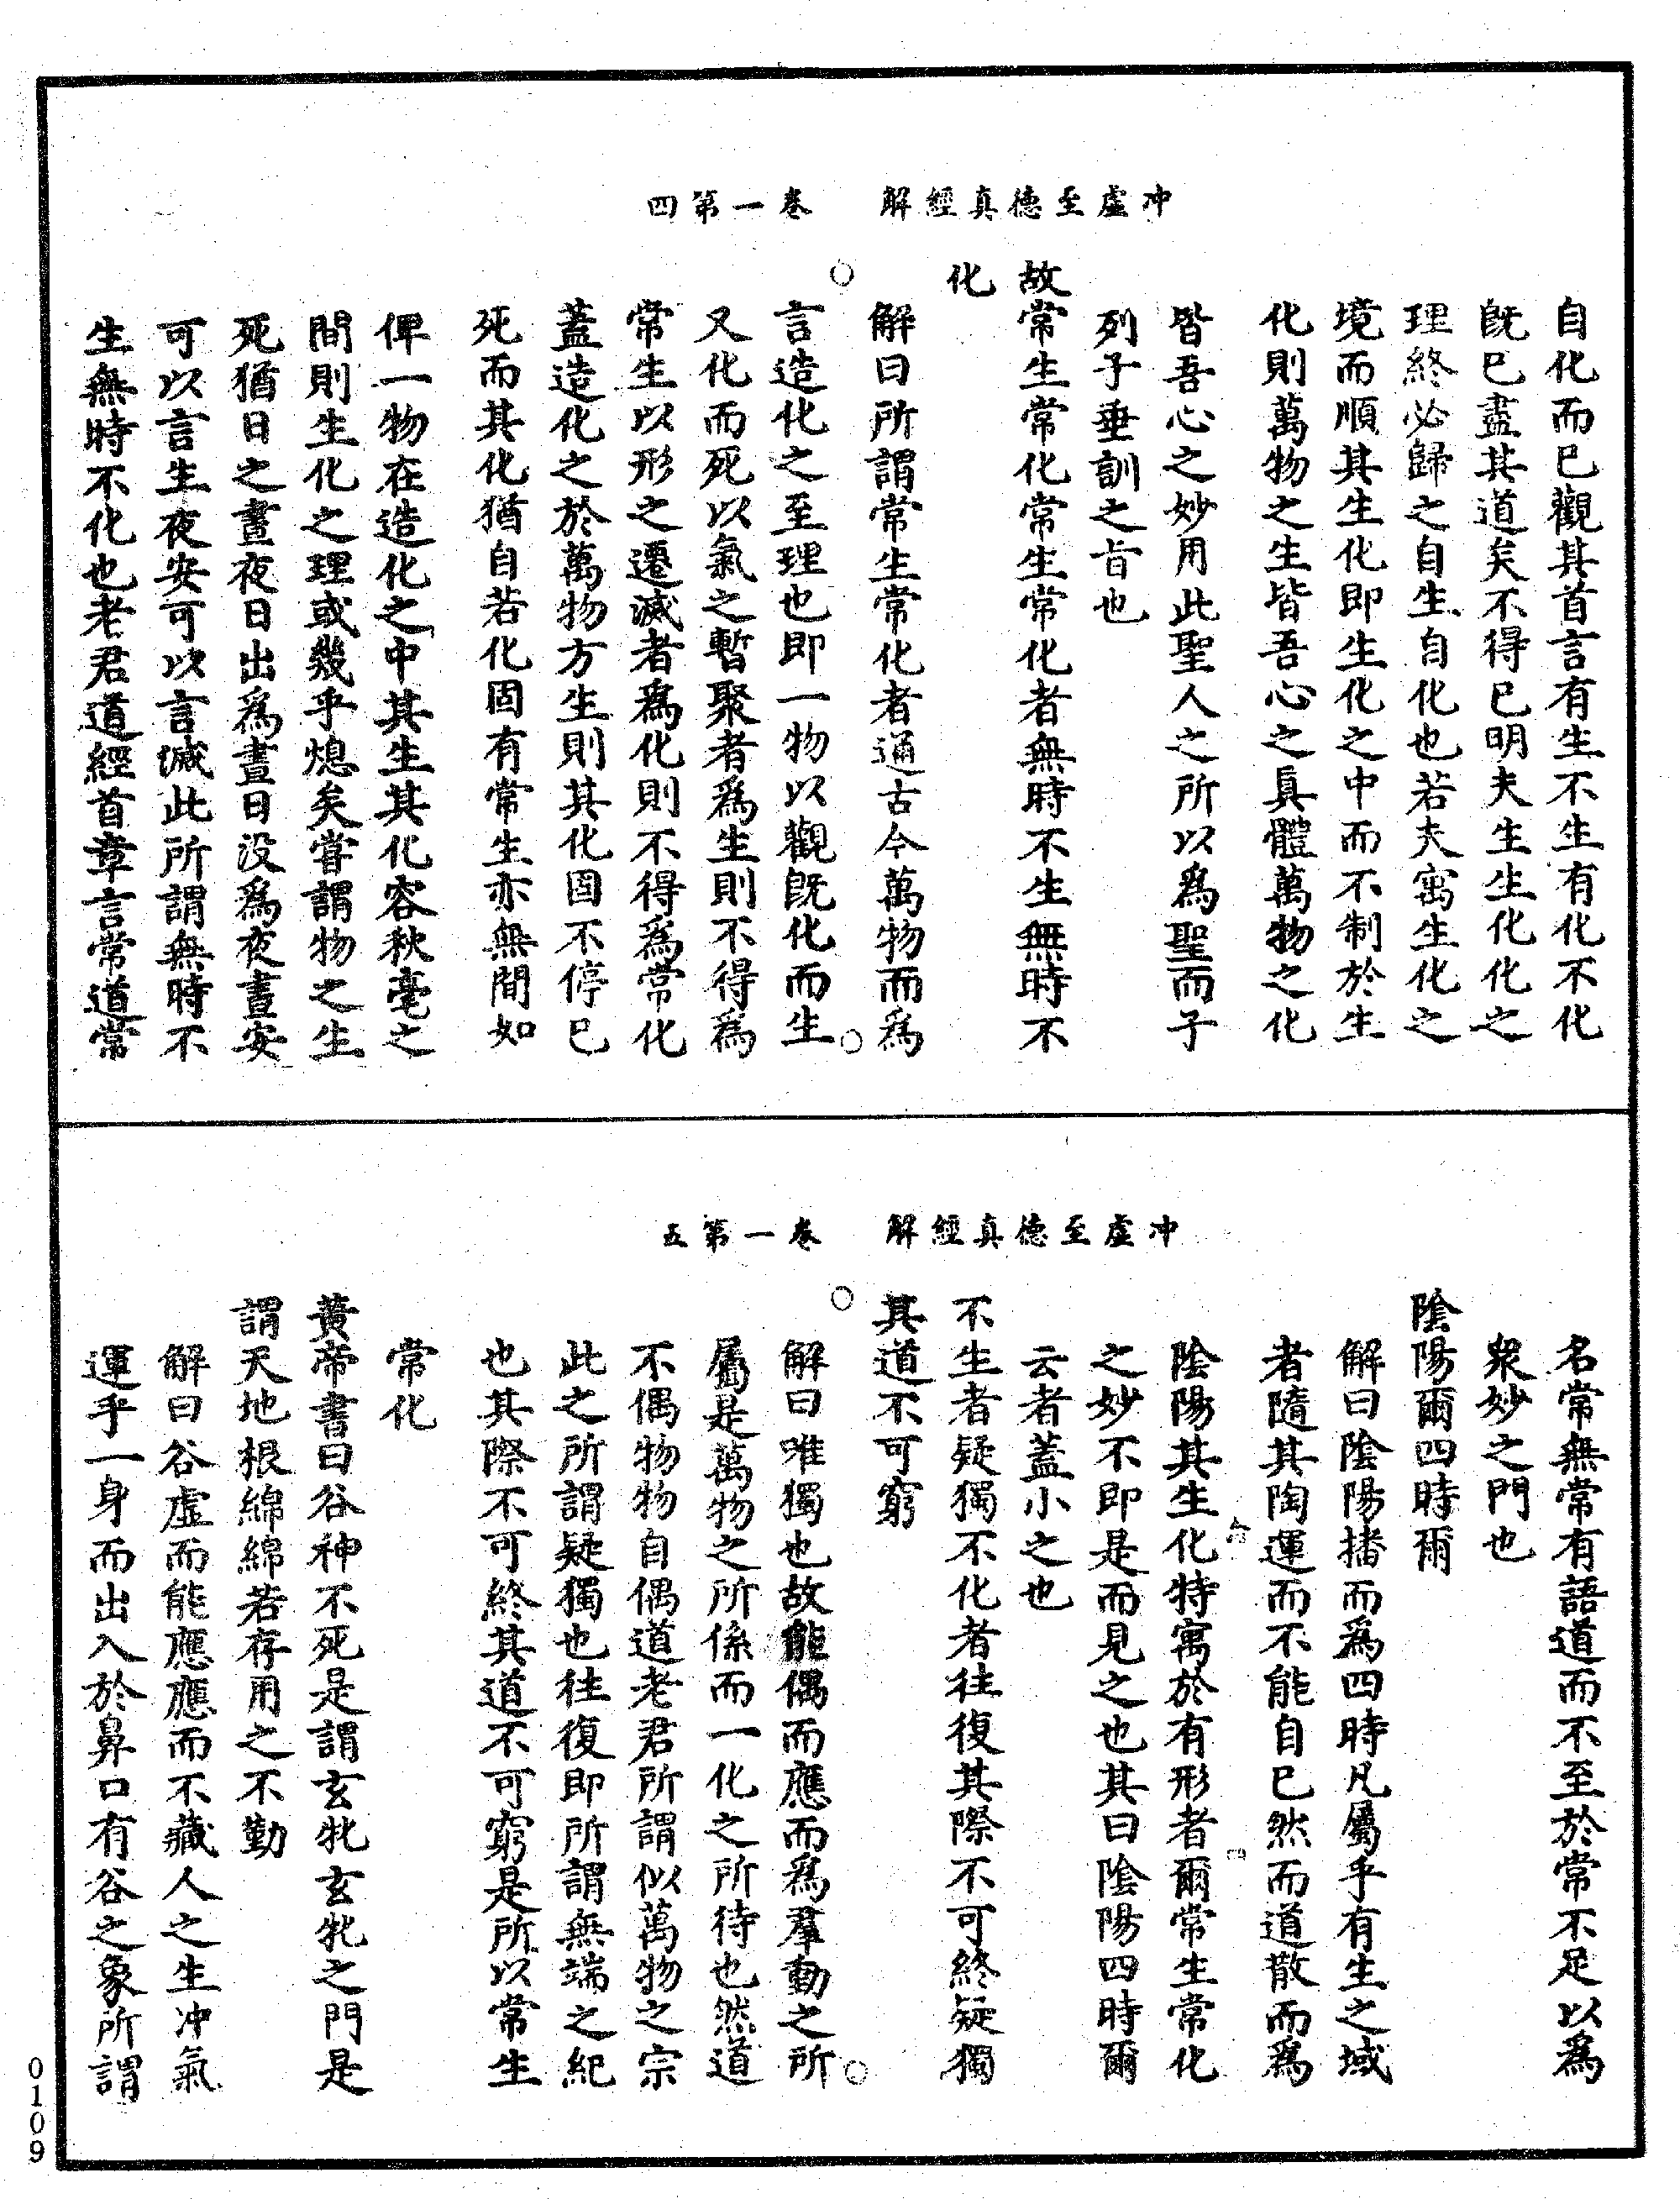 冲虛至德真經解　卷一第四
自化而已觀其首言有生不生有化不化
旣已盡其道矣不得已明夫生生化化之
理終必歸之自生自化也若夫寓生化之
境而順其生化即生化之中而不制於生
化則萬物之生皆吾心之真體萬物之化
皆吾心之妙用此聖人之所以爲聖而子
列子垂訓之旨也
故常生常化常生常化者無時不生無時不
化
解曰所謂常生常化者通古今萬物而爲
言造化之至理也即一物以觀旣化而生
又化而死以氣之暫聚者爲生則不得爲
常生以形之遷滅者爲化則不得爲常化
蓋造化之於萬物方生則其化固不停已
死而其化猶自若化固有常生亦無間如
俾一物在造化之中其生其化容秋毫之
間則生化之理或幾乎熄矣嘗謂物之生
死猶日之晝夜日出爲晝日沒爲夜晝安
可以言生夜安可以言滅此所謂無時不
生無時不化也老君道經首章言常道常
冲虛至德真經解　卷一第五
名常無常有語道而不至於常不足以爲
衆妙之門也
陰陽爾四時爾
解曰陰陽播而爲四時凡屬乎有生之域
者隨其陶運而不能自已然而道散而爲
陰陽其生化特寓於有形者爾常生常化
之妙不即是而見之也其曰陰陽四時爾
云者蓋小之也
不生者疑獨不化者往復其際不可終疑獨
其道不可窮
解曰唯獨也故能偶而應而爲羣動之所
屬是萬物之所係而一化之所待也然道
不偶物物自偶道老君所謂似萬物之宗
此之所謂疑獨也往復即所謂無端之紀
也其際不可終其道不可窮是所以常生
常化
黃帝書曰谷神不死是謂玄牝玄牝之門是
謂天地根綿綿若存用之不勤
解曰谷虛而能應應而不藏人之生沖氣
運乎一身而出入於鼻口有谷之象所謂
0109